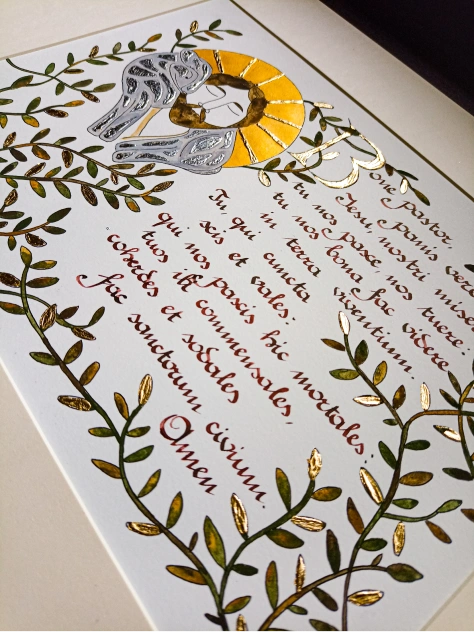 Bone pastor,
panis ver
Iesu, nostri mise
tu nos pasce, nos tuere:
tu nos bona fac videre
in terra viventium.
Tu, qui cuncta
scis et vales:
qui nos pascis hic mortales,
tuos ibi commensales,
coheredes et sodales
fac sanctorum civium.
Amen